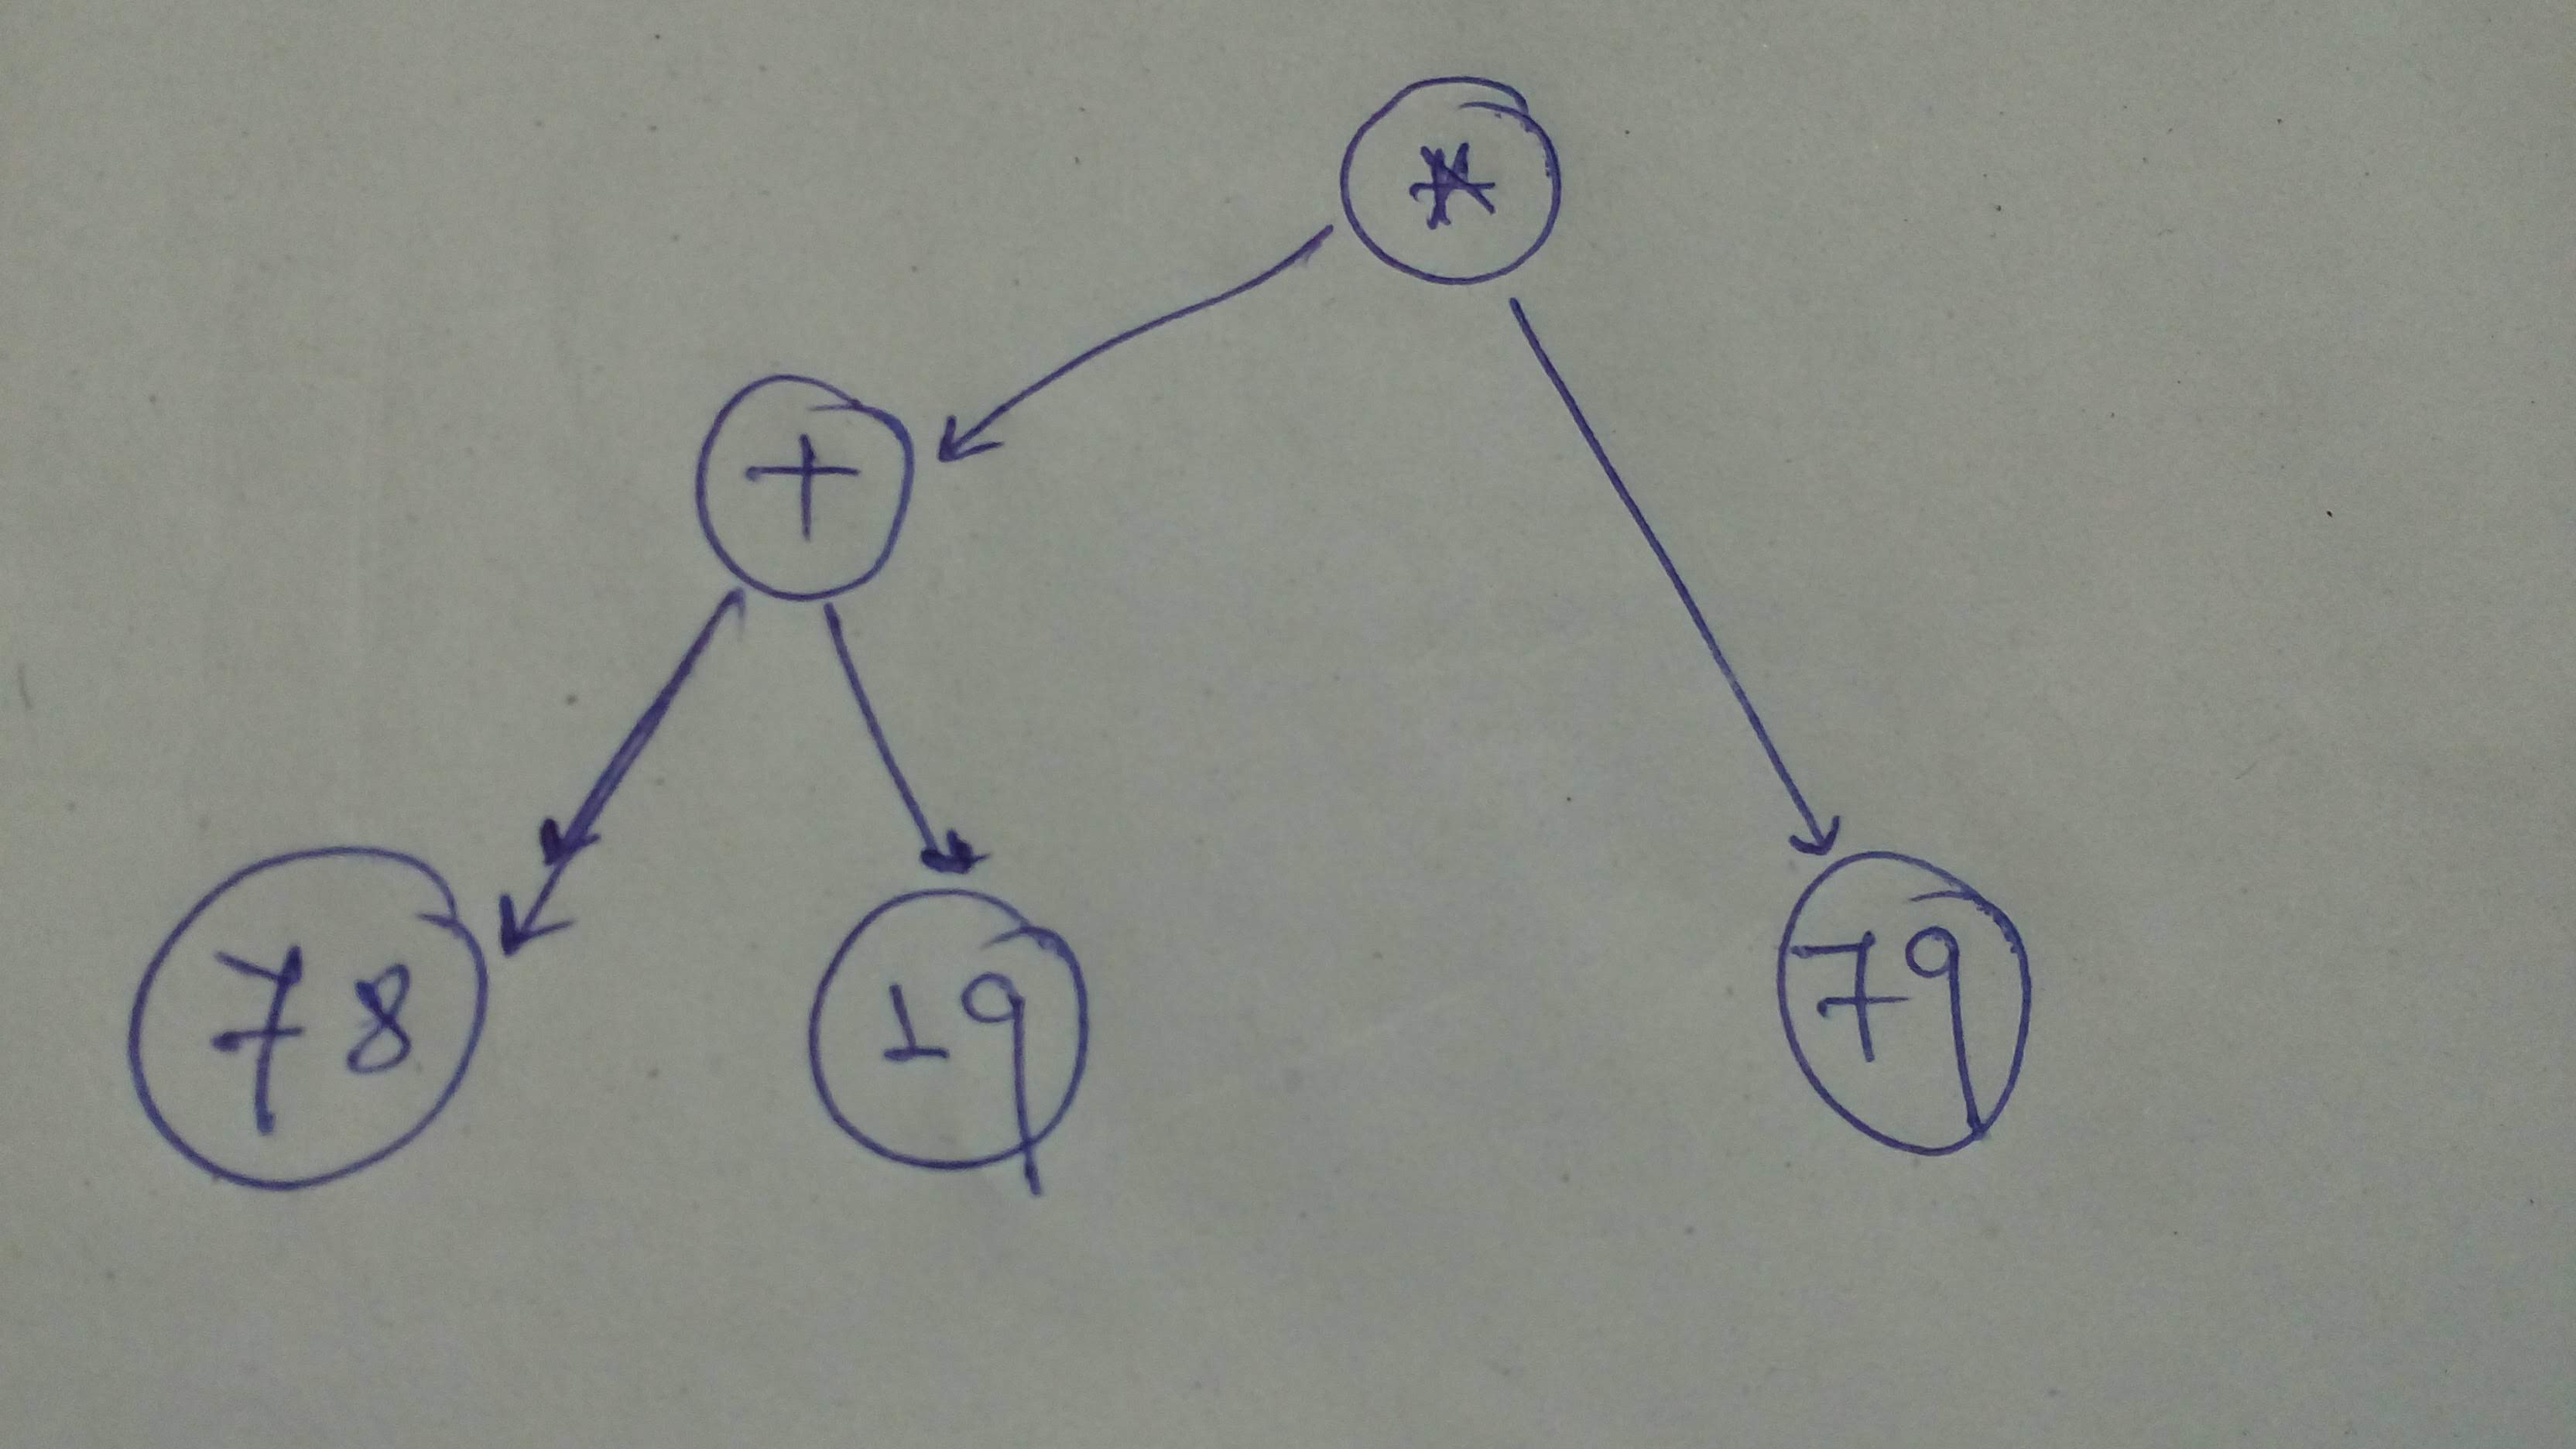 *
+
78 19 79